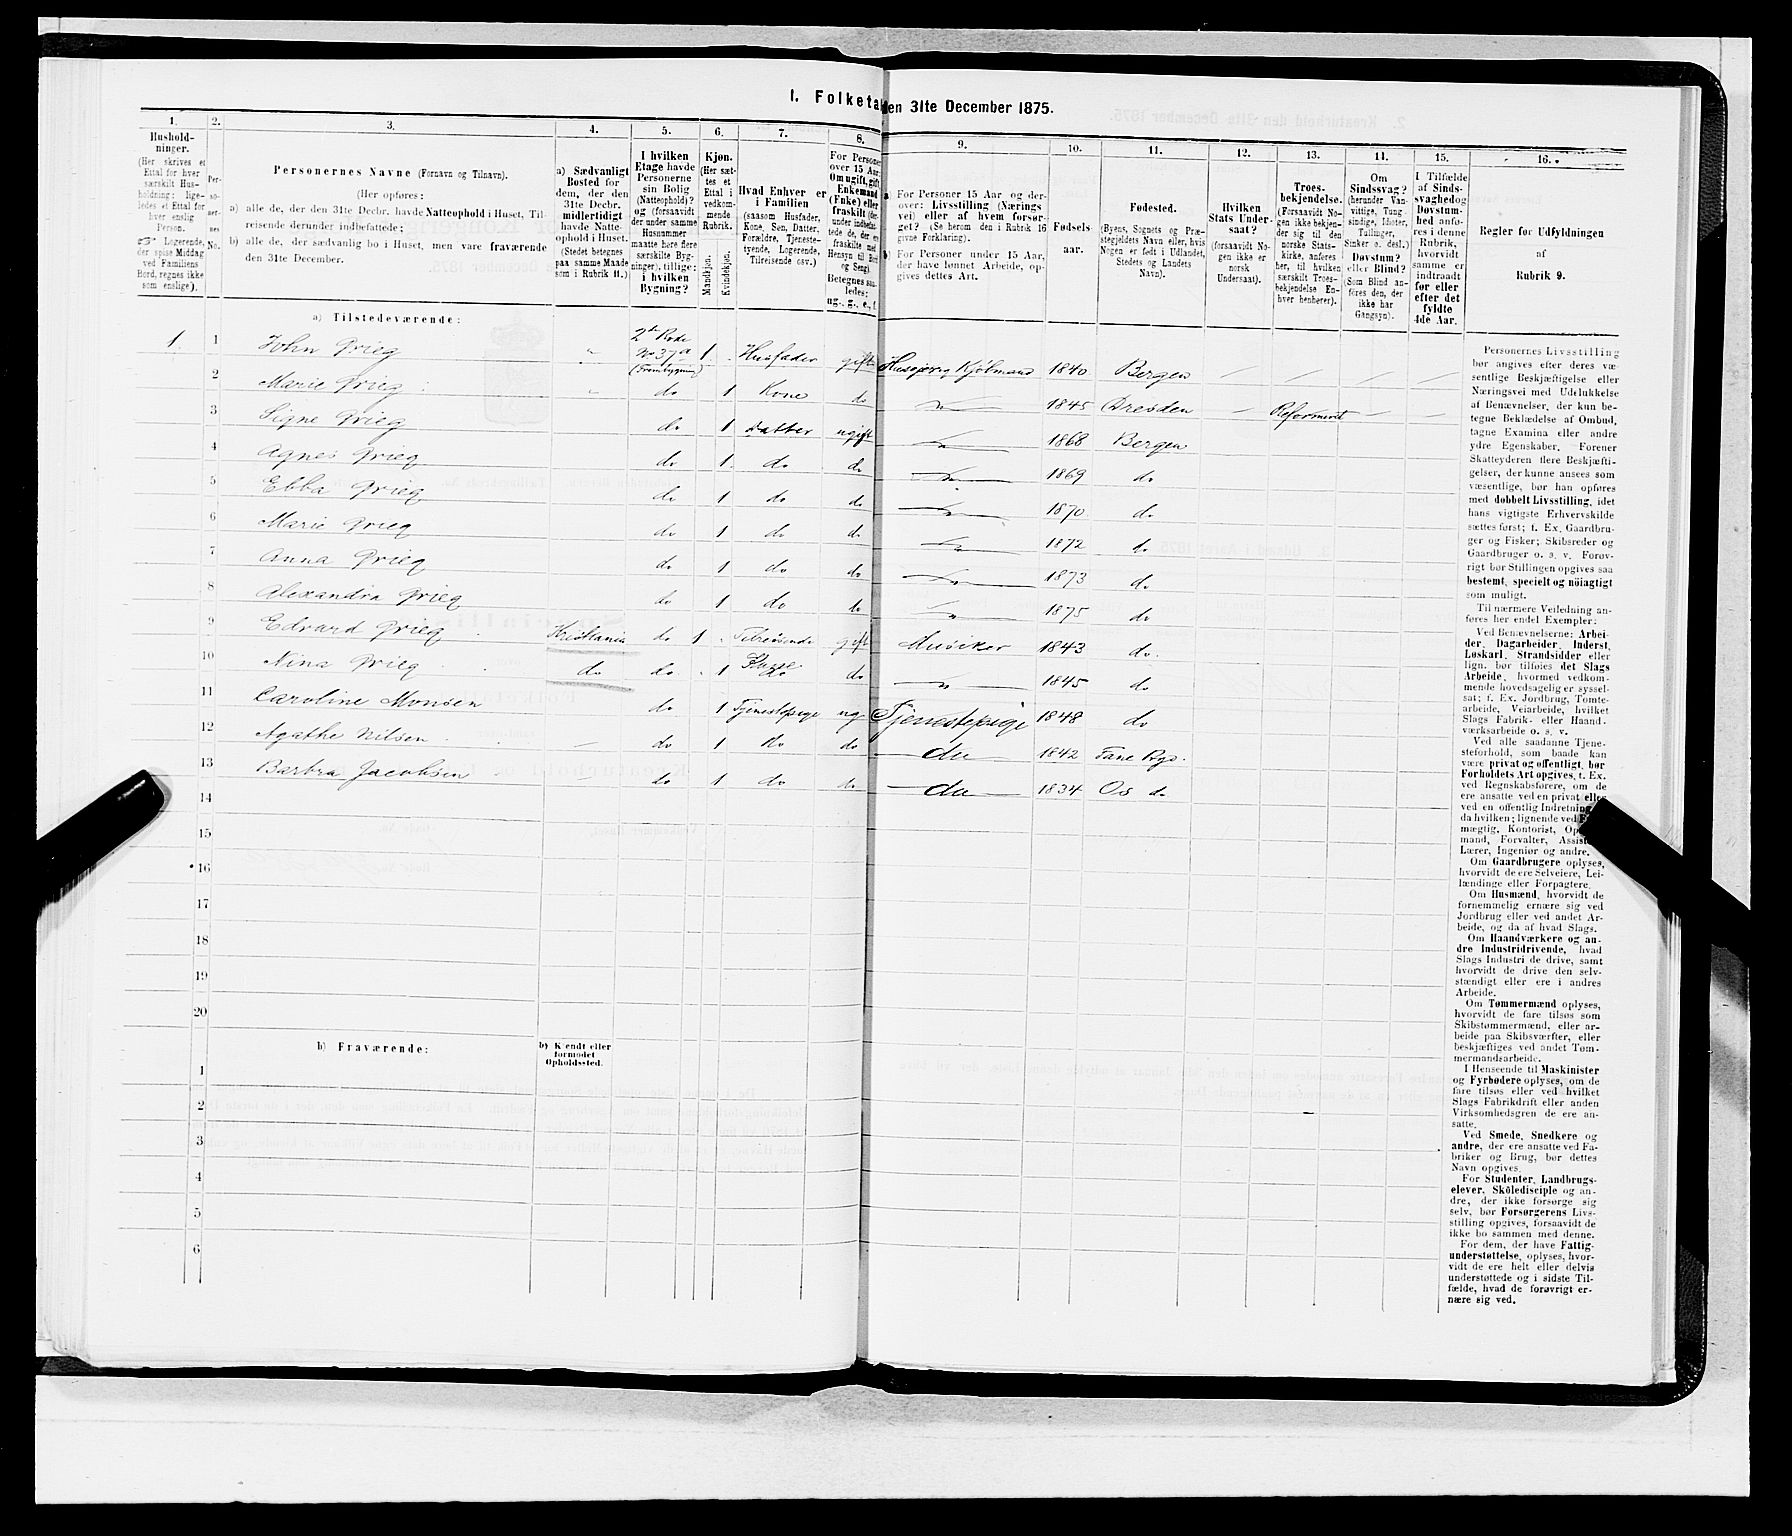 1. Folketa
en 31te December 1875.
1. 2. 3. 4. 5. 6. 7. 8. 9. 10. 11. 12. 13. 14. 15. 16.
Hushold-
ninger.
(Her skrives et
Ettal for hver
særskilt Hus-
holdning; lige-
ledes et Ettal for
hver enslig
Person.
Logerende,
der spise Middag
ved Familiens
Bord, regnes ikke
som enslige).
Per-
so-
ner-
nes
No.
Personernes Navne (Fornavn og Tilnavn).
(Her opføres:
a) alle de, der den 31te Decbr. havde Natteophold i Huset, Til-
reisende derunder indbefattede;
b) alle de, der sædvanlig bo i Huset, men vare fraværende
den 31te December.
a) Sædvanligt
Bosted for
dem, der den
31te Decbr.
midlertidigt
havde Natte-
ophold i Huset.
(Stedet betegnes
paa samme Maade
som i Rubrik 11.)
I hvilken
Etage havde
Personerne
sin Bolig
(Natteophold)?
og (forsaavidt
der under samme
Husnummer
maatte høre flere
særskilte Byg-
ninger), tillige:
i hvilken
Bygning?
Kjøn.
(Her sæt-
tes et
Ettal i
vedkom-
mende
Rubrik.
Mandkjøn.
Kvindekjøn.
Hvad Enhver er
i Familien
(saasom Husfader,
Kone, Søn, Datter,
Forældre, Tjeneste-
tyende, Logerende,
Tilreisende osv.)
For Personer
over 15 Aar:
Om ugift, gift,
Enkemand
(Enke) eller
fraskilt (der-
under indbefat-
tede de, der ere
fraskilte med
Hensyn til Bord
og Seng).
Betegnes saa-
ledes:
ug., g., e., f.
a) For Personer 15 Aar og der-
over: Livsstilling (Nærings
vei) eller af hvem forsør-
get? (Se herom den i Rubrik 16
givne Forklaring).
b) For Personer under 15 Aar,
der have lønnet Arbeide, op-
gives dettes Art.
Fødsels-
aar.
Fødested.
(Byens, Sognets og Præ-
stegjeldets Navn eller, hvis
Nogen er født i Udlandet,
Stedets og Landets
Navn).
Hvilken
Stats Under-
saat?
(forsaavidt No-
gen ikke er
norsk
Undersaat).
Troes-
bekjendelse.
(Forsaavidt No-
gen ikke bekjen-
der sig til den
norske Stats-
kirke, anføres
her, til hvilken
særskilt Troes-
bekjendelse En-
hver henhører).
Om
Sindssvag?
(herunder Van-
vittige, Tung-
sindige, Idioter,
Tullinger,
Sinker o. desl.)
Døvstum?
eller Blind?
(Som Blind an-
føres den, der
ikke har
Gangsyn).
I Tilfælde
af Sinds-
svaghed og
Døvstum-
hed anfø-
res i denne
Rubrik,
hvorvidt
samme er
indtraadt
før eller
efter det
fyldte
4de Aar.
Regler for Udfyldningen
af
Rubrik 9.
a) Tilstedeværende:
1. 1 John Grieg " 2den Rode No 37a (Frembygning) 1 Husfader gift Huseier og Kjøbmand 1840 Bergen
2 Marie Grieg " do 1 Kone do " 1845 Dresden Reformeret
3 Signe Grieg do 1 Datter ugift " 1868 Bergen
4 Agnes Grieg do 1 do do " 1869 do
5 Ebba Grieg do 1 do do " 1870 do
6 Marie Grieg do 1 do do " 1872 do
7 Anna Grieg do 1 do do " 1873 do
8 Alexandra Grieg do 1 do do " 1875 do
9 Edvard Grieg Kristiania do 1 Tilreisende gift Musiker 1843 do.
10 Nina Grieg do do 1 do do " 1845 do
11 Caroline Monsen do 1 Tjenestepige ug Tjenestepige 1848 do
12 Agathe Nilsen do 1 do do do 1842 Fane Pgj.
13 Barbra Jacobsen do 1 do do do 1834 Os do
14
15
16
17
18
19
20
b) Fraværende:
b) Kjendt eller
formodet
Opholdssted.
1
2
3
4
5
6
Personernes Livsstilling
bør angives efter deres væ-
sentlige Beskjæftigelse eller
Næringsvei med Udelukkelse
af Benævnelser, der kun be-
tegne Beklædelse af Ombud,
tagne Examina eller andre
ydre Egenskaber. Forener
Skatteyderen flere Beskjæfti-
gelser, der kunne ansees som
væsentlige, bør han opføres
med dobbelt Livsstilling, idet
hans vigtigste Erhvervskilde
sættes først; f. Ex. Gaardbru-
ger og Fisker; Skibsreder og
Gaardbruger o. s. v. Forøv-
rigt bør Stillingen opgives saa
bestemt, specielt og nöiagtigt
som muligt.
Til nærmere Veiledning an-
føres her endel Exempler:
Ved Benævnelserne: Arbei-
der, Dagarbeider, Inderst,
Løskarl, Strandsidder eller
lign. bør tilføies det Slags
Arbeide, hvormed vedkom-
mende hovedsagelig er syssel-
sat; f. Ex. Jordbrug, Tomte-
arbeide, Veiarbeide, hvilket
Slags Fabrik- eller Haand-
værksarbeide o. s. v.
Ved alle saadanne Tjene-
steforhold, som baade kan
være privat og offentligt, bør
Forholdets Art opgives, f. Ex.
ved Regnskabsførere, om de
ere ansatte ved en privat eller
ved en offentlig Indretning
da hvilken; lignende ved
mægtig, Kontorist, Op
mand, Forvalter, Assis
Lærer, Ingeniør og andre.
Om Gaardbrugere oplyses,
hvorvidt de ere Selveiere, Lei-
lændinge eller Forpagtere.
Om Husmænd, hvorvidt de
fornemmelig ernære sig ved
Jordbrug eller ved andet Ar-
beide, og da af hvad Slags.
Om Haandværkere og an-
dre Industridrivende, hvad
Slags Industri de drive, samt
hvorvidt de drive den selv-
stændigt eller ere i andres
Arbeide.
Om Tømmermænd oplyses,
hvorvidt de fare tilsøs som
Skibstømmermænd, eller ar-
beide paa Skibsværfter, eller
beskjæftiges ved andet Tøm-
mermandsarbeide.
I Henseende til Maskinister
og Fyrbødere oplyses, om de
fare tilsøs eller ved hvilket
Slags Fabrikdrift eller anden
Virksomhedsgren de ere an-
satte.
Ved Smede, Snedkere og
andre, der ere ansatte ved Fa-
briker og Brug, bør dettes
Navn opgives.
For Studenter, Landbrugs-
elever, Skoledisciple og an-
dre, der ikke forsørge sig
selv, bør Forsørgerens Livs-
stilling opgives, forsaavidt de
ikke bo sammen med denne.
For dem, der have Fattig-
understøttelse, oplyses, hvor-
vidt de ere helt eller delvis
understøttede og i sidste Til-
fælde, hvad de forøvrigt er-
nære sig ved.